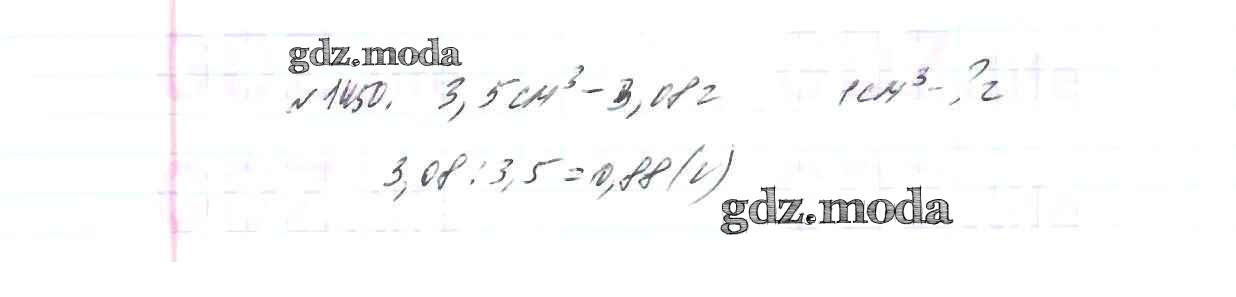 gdz.moda
№1450. 3,5 см³ - 3,08 г 1 см³ - ? г
3,08 : 3,5 = 0,88 (г)
gdz.moda